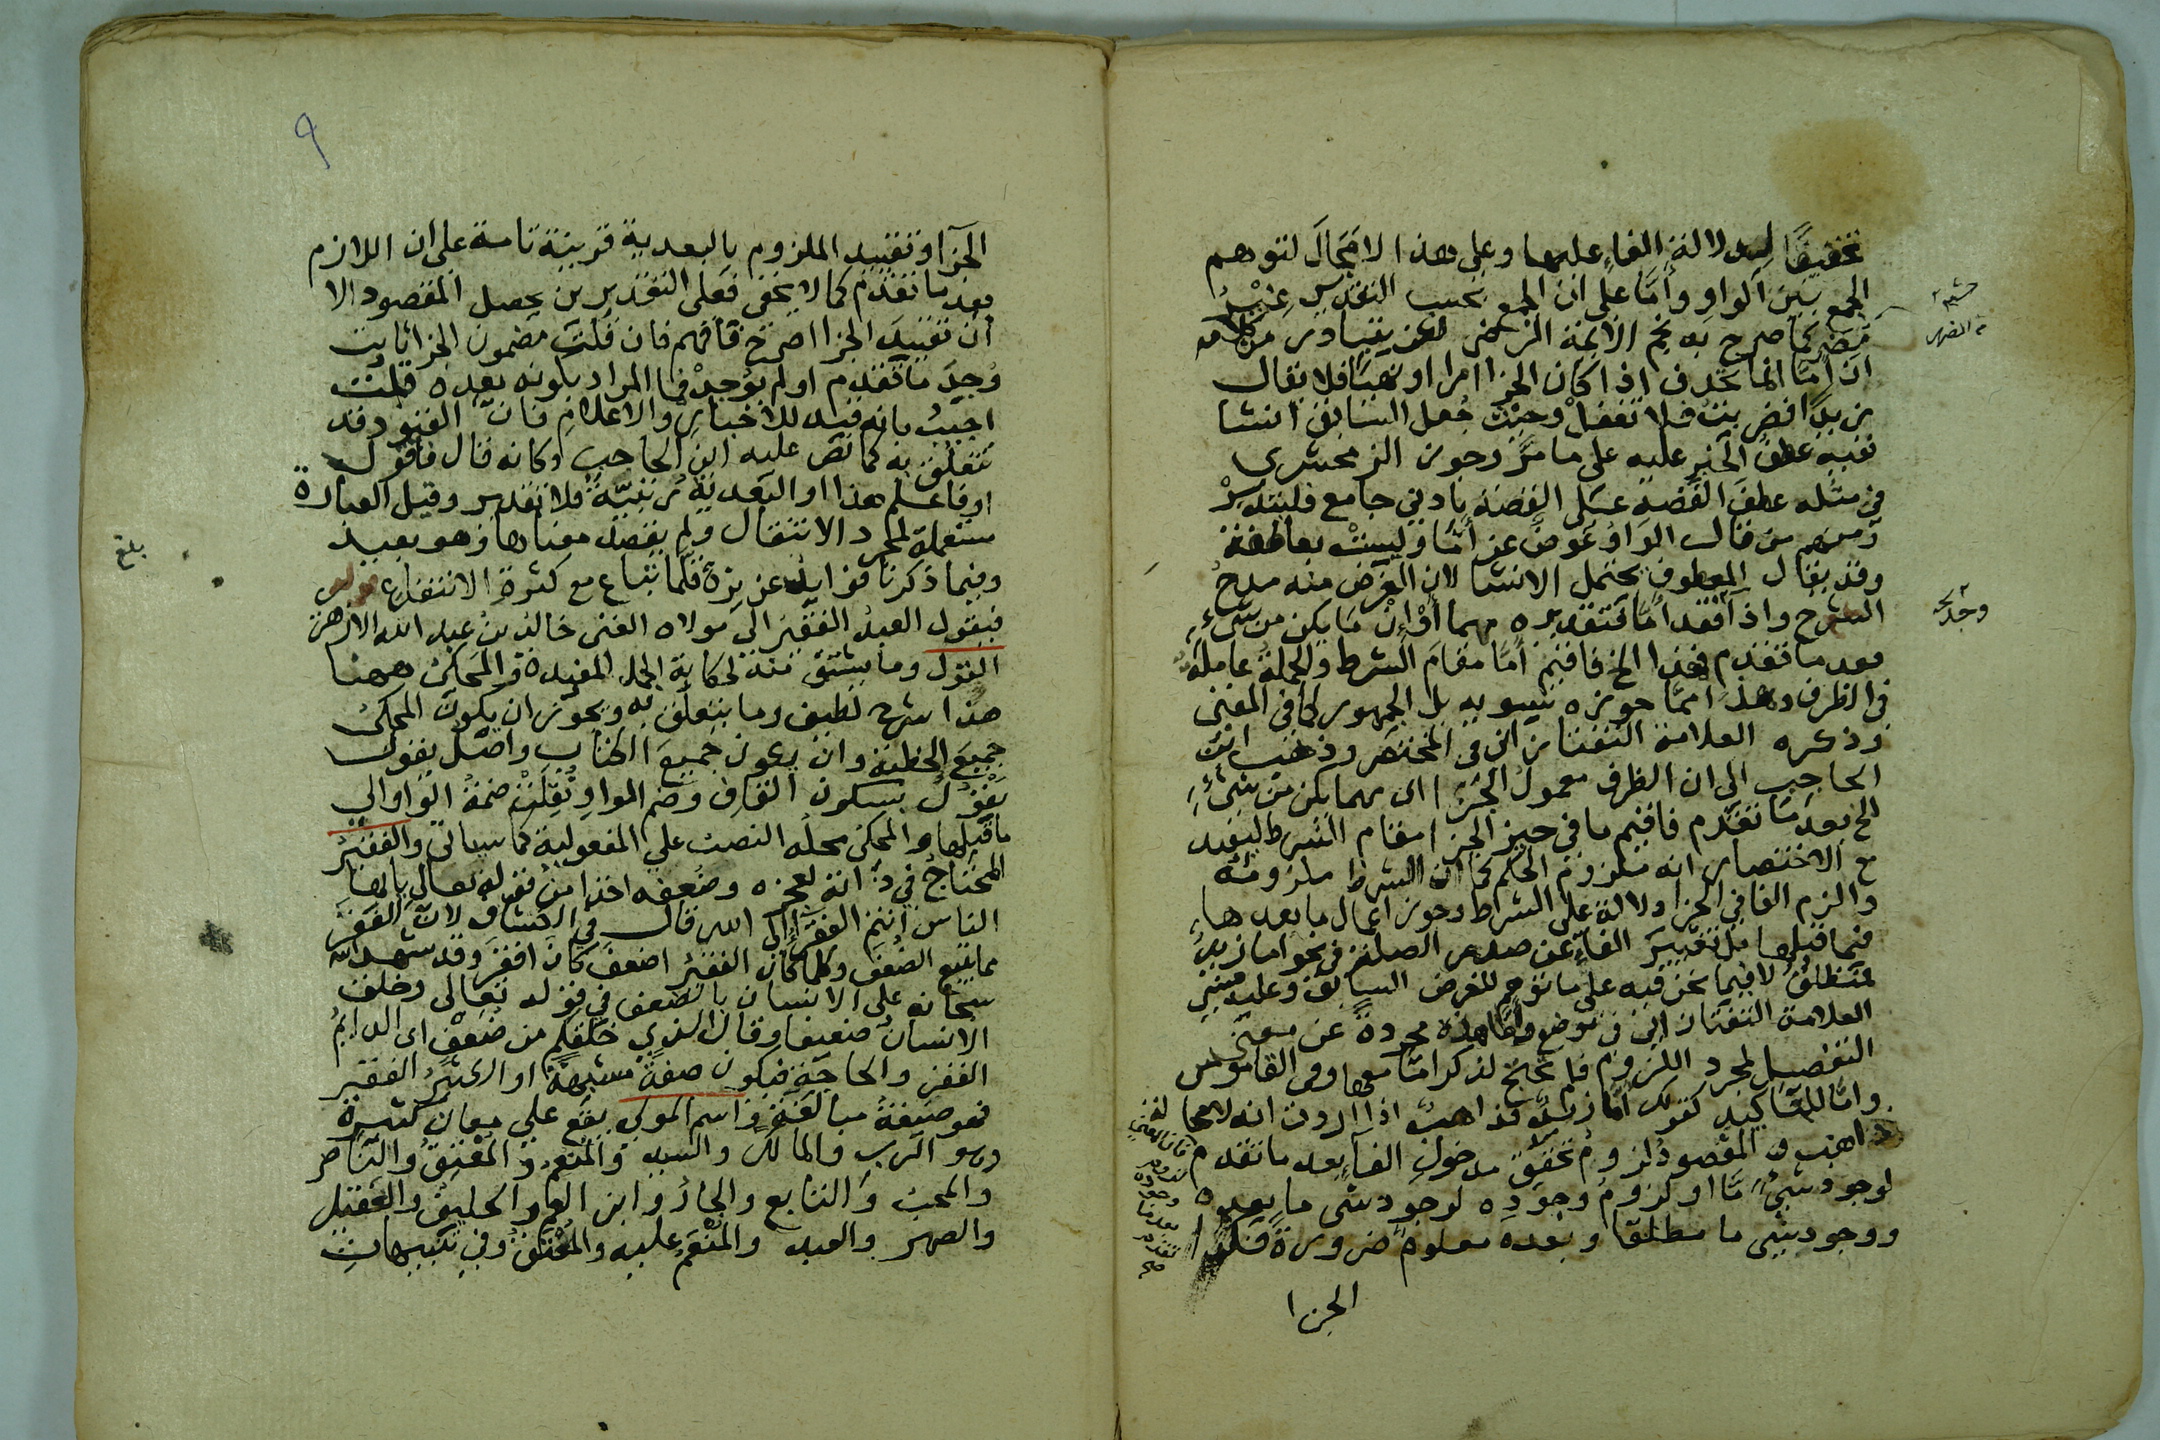 تخفيفا لدلالة الفاء عليها وعلى هذا لا مجال لتوهم
الجمع بين الواو وأما على ان الجمع بحسب التقدير غير
مضر كما صرح به نجم الائمة الرضي لكن يتبادر من كلامه
ان اما انما تحذف اذا كان الجزا امرا او نهيا فلا يقال
زيدا فضربت فلا تغفل وحيث جعل السابق انشا
ففيه عطف الخبر عليه على ما مر وجوز الزمخشري
في مثله عطف القصة على القصة بادني جامع فليتدبر
ومنهم من قال الواو عوض عن أما وليست بعاطفة
وقد يقال المعطوف يحتمل الانشا لان الغرض منه مدح
الشرح واذا فقد أما فتقديره مهما أو إن ما يكن من شيء
بعد ما تقدم فهذا الخ فاقيم أما مقام الشرط والجملة عاملة
في الظرف وهذا مما جوزه سيبويه بل الجمهور كما في المغني
وذكره العلامة التفتازاني في المختصر وذهب ابن
الحاجب الى ان الظرف معمول الجزا اي مهما يكن من شيء
الخ بعد ما تقدم فاقيم ما في حيز الجزا مقام الشرط ليفيد
مع الاختصار انه ملزوم الحكم كما ان الشرط ملزومه
والزم الفا في الجزا دلالة على الشرط وجوز اعمال ما بعدها
فيما قبلها بل تغيير الفاء عن صدر الصلة في نحو اما زيد
فمنطلق لا فيما نحن فيه على ما نوجه للغرض السابق وعليه
العلامة التفتازاني في موضع وأما هذه مجردة عن معنى
التفصيل لمجرد اللزوم فلم يحتج لذكر اما معها وفي القاموس
وأما للتأكيد كقولك أما زيد فذاهب اذا اردت انه لا محالة
ذاهب والمقصود لزوم تحقق مدخول الفاء بعد ما تقدم
لوجود شيء ما او لزوم وجوده لوجود شي ما بعده
ووجود شي ما مطلقا وبعده معلوم ضرورة
الجزا
وحده
الجزا وتقييد الملزوم بالبعدية قرينة تامة على ان اللازم
بعد ما تقدم كما لا يخفى فعلى التقديرين يحصل المقصود الا
أن تقييد الجزا اصرح فافهم فان قلت مضمون الجزا ثابت
وجد ما تقدم او لم يوجد فما المراد بكونه بعده قلت
اجيب بانه قيد للاخبار والاعلام فان القيود قد
تتعلق به كما نص عليه ابن الحاجب وكانه قال فاقول
او فاعلم هذا او البعدية رتبية فلا تقدير وقيل العبارة
مستعملة لمجرد الانتقال ولم يقصد معناها وهو بعيد
وفيما ذكرنا فوايد عن بزه قلما تباع مع كثرة الانتفاع قوله
فيقول العبد الفقير الى مولاه الغنى خالد بن عبد الله الازهرى
القول وما يشتق منه لحكاية الجمل المفيدة والمحكى ههنا
هذا شرح لطيف وما يتعلق به ويجوز ان يكون المحكى
جميع الخطبة وان يكون جميع الكتاب واصل يقول
يقول بسكون القاف وضم الواو ونقلت ضمة الواو الى
ما قبلها والمحكى محله النصب على المفعولية كما سياتي والفقير
المحتاج في ذاته لعجزه وضعفه اخذا من قوله تعالى يا ايها
الناس انتم الفقرا الى الله قال في الكشاف لان الفقر
مما يتبع الضعف وكلما كان الفقير اضعف كان افقر وقد شهد الله
سبحانه على الانسان بالضعف في قوله تعالى وخلق
الانسان ضعيفا وقال الذي خلقكم من ضعف اي الدايم
الفقر والحاجة فيكون صفة مشبهة او الكثير الفقير
فهو صيغة مبالغة واسم المولى يقع على معان كثيرة
وهو الرب والمالك والسيد والمنعم والمعتق والناصر
والمحب والتابع والجار وابن العم والحليف والعقيد
والصهر والعبد والمنعم عليه والمعتق وفي تشبيهات
بلغ
٩